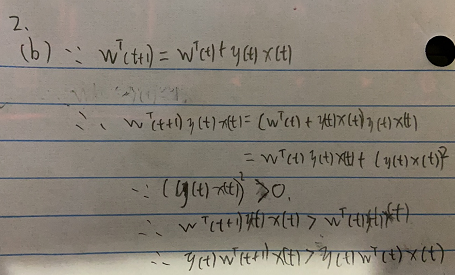 2.
(b) ∵ wᵀ(t+1) = wᵀ(t) + y(t) x(t)
∴ wᵀ(t+1) y(t) x(t) = (wᵀ(t) + y(t) x(t)) y(t) x(t)
= wᵀ(t) y(t) x(t) + (y(t) x(t))²
∵ (y(t) x(t))² ≥ 0,
∴ wᵀ(t+1) y(t) x(t) > wᵀ(t) y(t) x(t)
∴ y(t) wᵀ(t+1) x(t) > y(t) wᵀ(t) x(t)